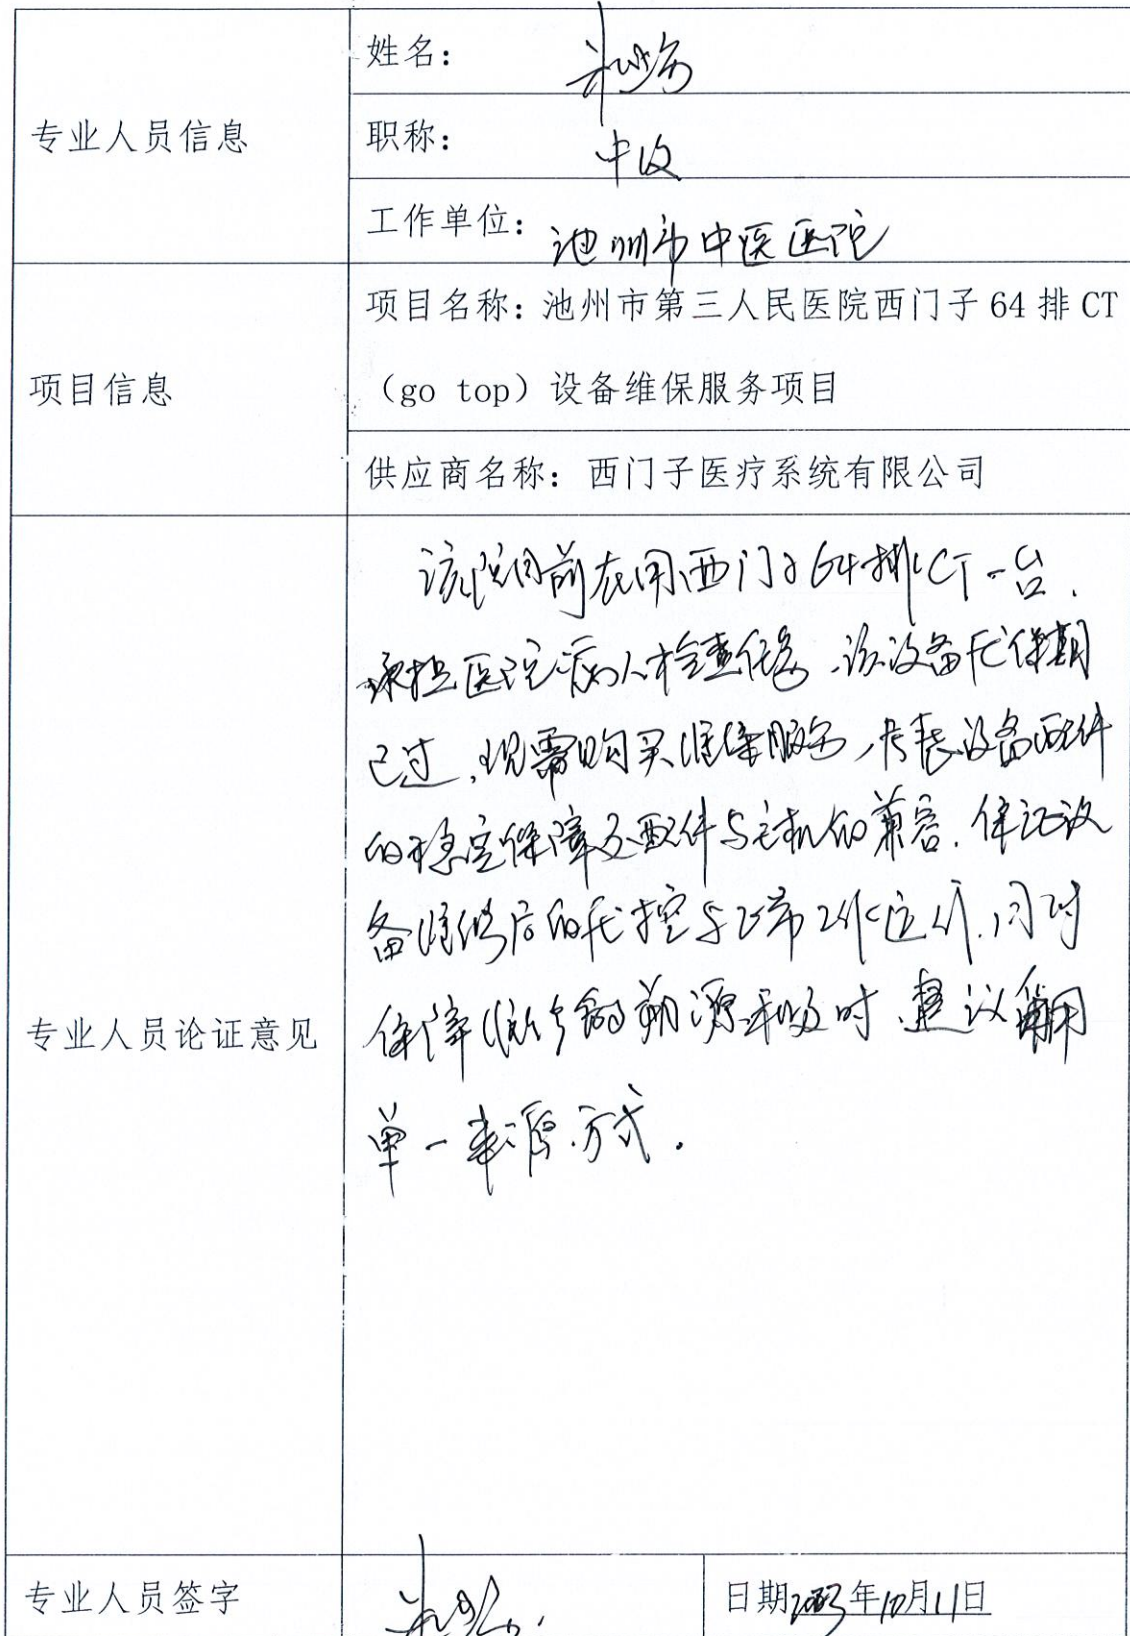 姓名：
专业人员信息
职称：
中级
工作单位：池州市中医医院
项目名称：池州市第三人民医院西门子 64 排 CT
项目信息
（go top）设备维保服务项目
供应商名称：西门子医疗系统有限公司
该院目前在用西门子64排CT一台．
承担医院病人检查任务．该设备质保期
已过，现需购买维保服务，考虑设备配件
的稳定保障及配件与主机的兼容．保证设
备维修后的质控与正常工作运行．同时
专业人员论证意见
保障维修的溯源和及时．建议采用
单一来源方式．
专业人员签字
日期2023年10月11日